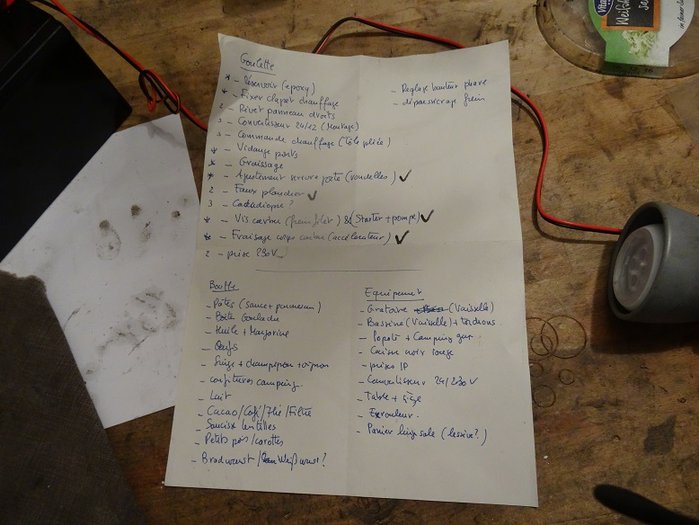 Goulette
* - Réservoir (epoxy)
* - Fixer clapet chauffage
2 - Rivet panneau droits
3 - Convertisseur 24/12 (Montage)
3 - Commande chauffage (Tôle pliée)
* - Vidange ponts
* - Graissage
* - Ajustement serrure porte (rondelles) ✓
2 - Faux plancher ✓
3 - Catadioptre ?
* - Vis carbu (frein filet) & (Starter + pompe) ✓
* - Fraisage corps carbu (accélérateur) ✓
2 - prise 230V
- Reglage hauteur phare
- dépoussierage frein
Bouffe
- Pâtes (sauce + parmesan)
- Huile + Margarine
- Oeufs
- + champignon + oignon
- confitures camping
- Lait
- Cacao/Café/Thé/Filtre
- Saucisse lentilles
- Petits pois/carottes
- Bradwurst/Weißwurst?
Equipement
- (Vaisselle)
- Bassine (Vaisselle) + torchons
- Popote + Camping gaz
- Caisse noir rouge
- prises IP
- Convertisseur 24/230V
- Table + siège
- Enrouleur
- Panier linge sale (lessive?)